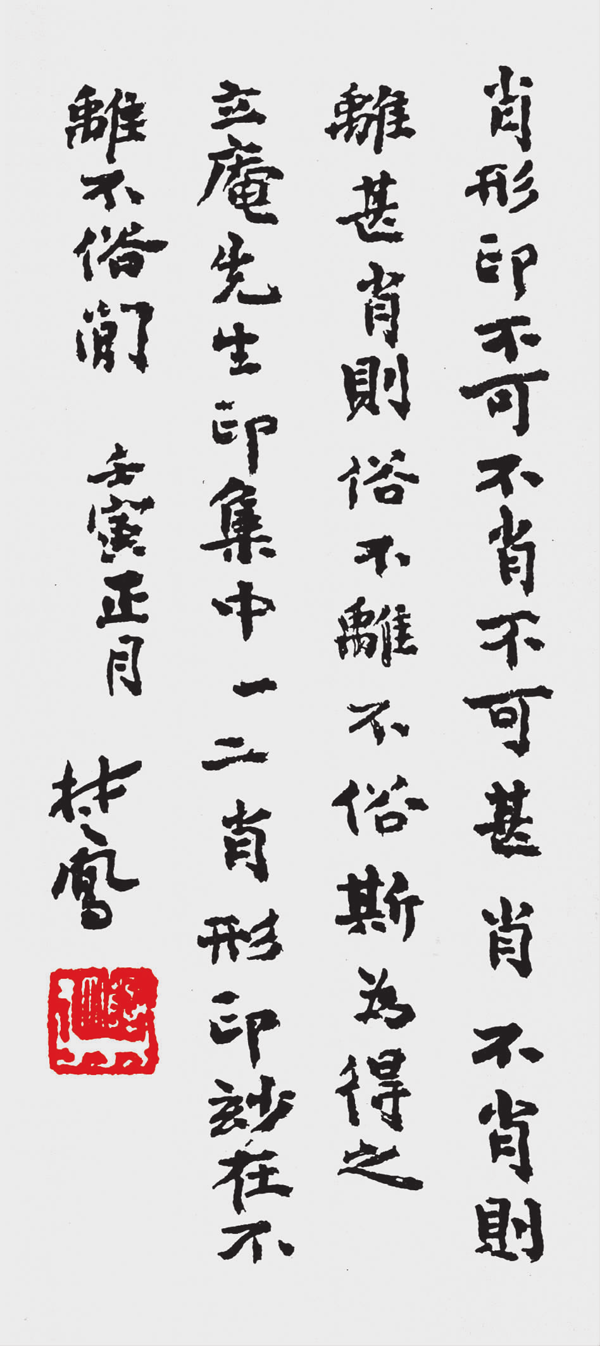 肖形印不可不肖不可甚肖不肖則
離甚肖則俗不離不俗斯為得之
立庵先生印集中一二肖形印玅在不
離不俗間
壬寅正月
楚鳳